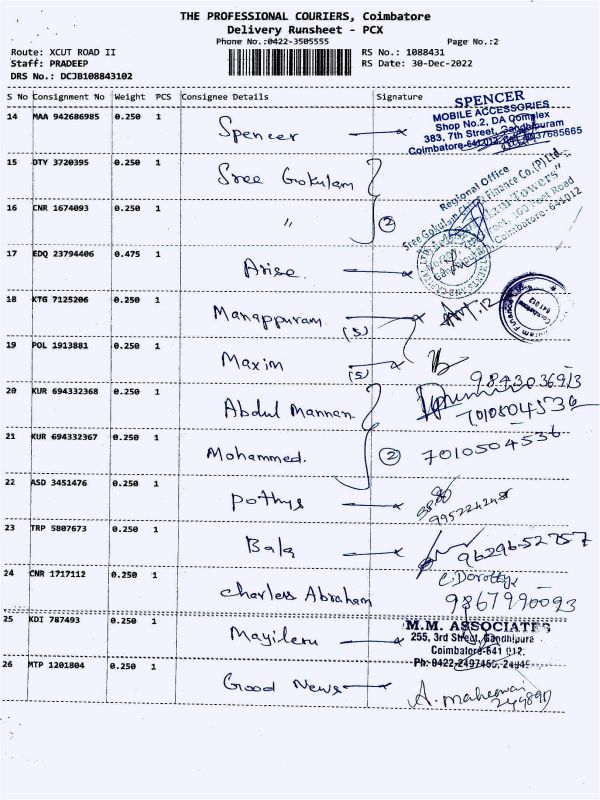 THE PROFESSIONAL COURIERS, Coimbatore
Delivery Runsheet - PCX
Phone No.:0422-3505555 Page No.:2
Route: XCUT ROAD II RS No.: 1088431
Staff: PRADEEP RS Date: 30-Dec-2022
DRS No.: DCJB108843102
S No Consignment No Weight PCS Consignee Details Signature
14 MAA 942686985 0.250 1 Spencer
SPENCER
MOBILE ACCESSORIES
Shop No.2, DA Complex
383, 7th Street, Gandhipuram
15 DTY 3720395 0.250 1 Sree Gokulam
Regional Office
16 CNR 1674093 0.250 1 " 2
Coimbatore- 641012
17 EDQ 23794406 0.475 1 Arise
18 KTG 7125206 0.250 1 Manappuram
(5)
19 POL 1913881 0.250 1 Maxim
(5)
9843036913
20 KUR 694332368 0.250 1 Abdul Mannan
7010504536
21 KUR 694332367 0.250 1 Mohammed. 2 7010504536
22 ASD 3451476 0.250 1 Pothys
23 TRP 5807673 0.250 1 Bala 9629652757
24 CNR 1717112 0.250 1 Charless Abraham
C. Dorothy
9867990093
25 KDI 787493 0.250 1 Mayileru
M.M. ASSOCIATES
255, 3rd Street, Gandhipura
Coimbatore-641 012.
26 MTP 1201804 0.250 1 Good News
A. maheswari